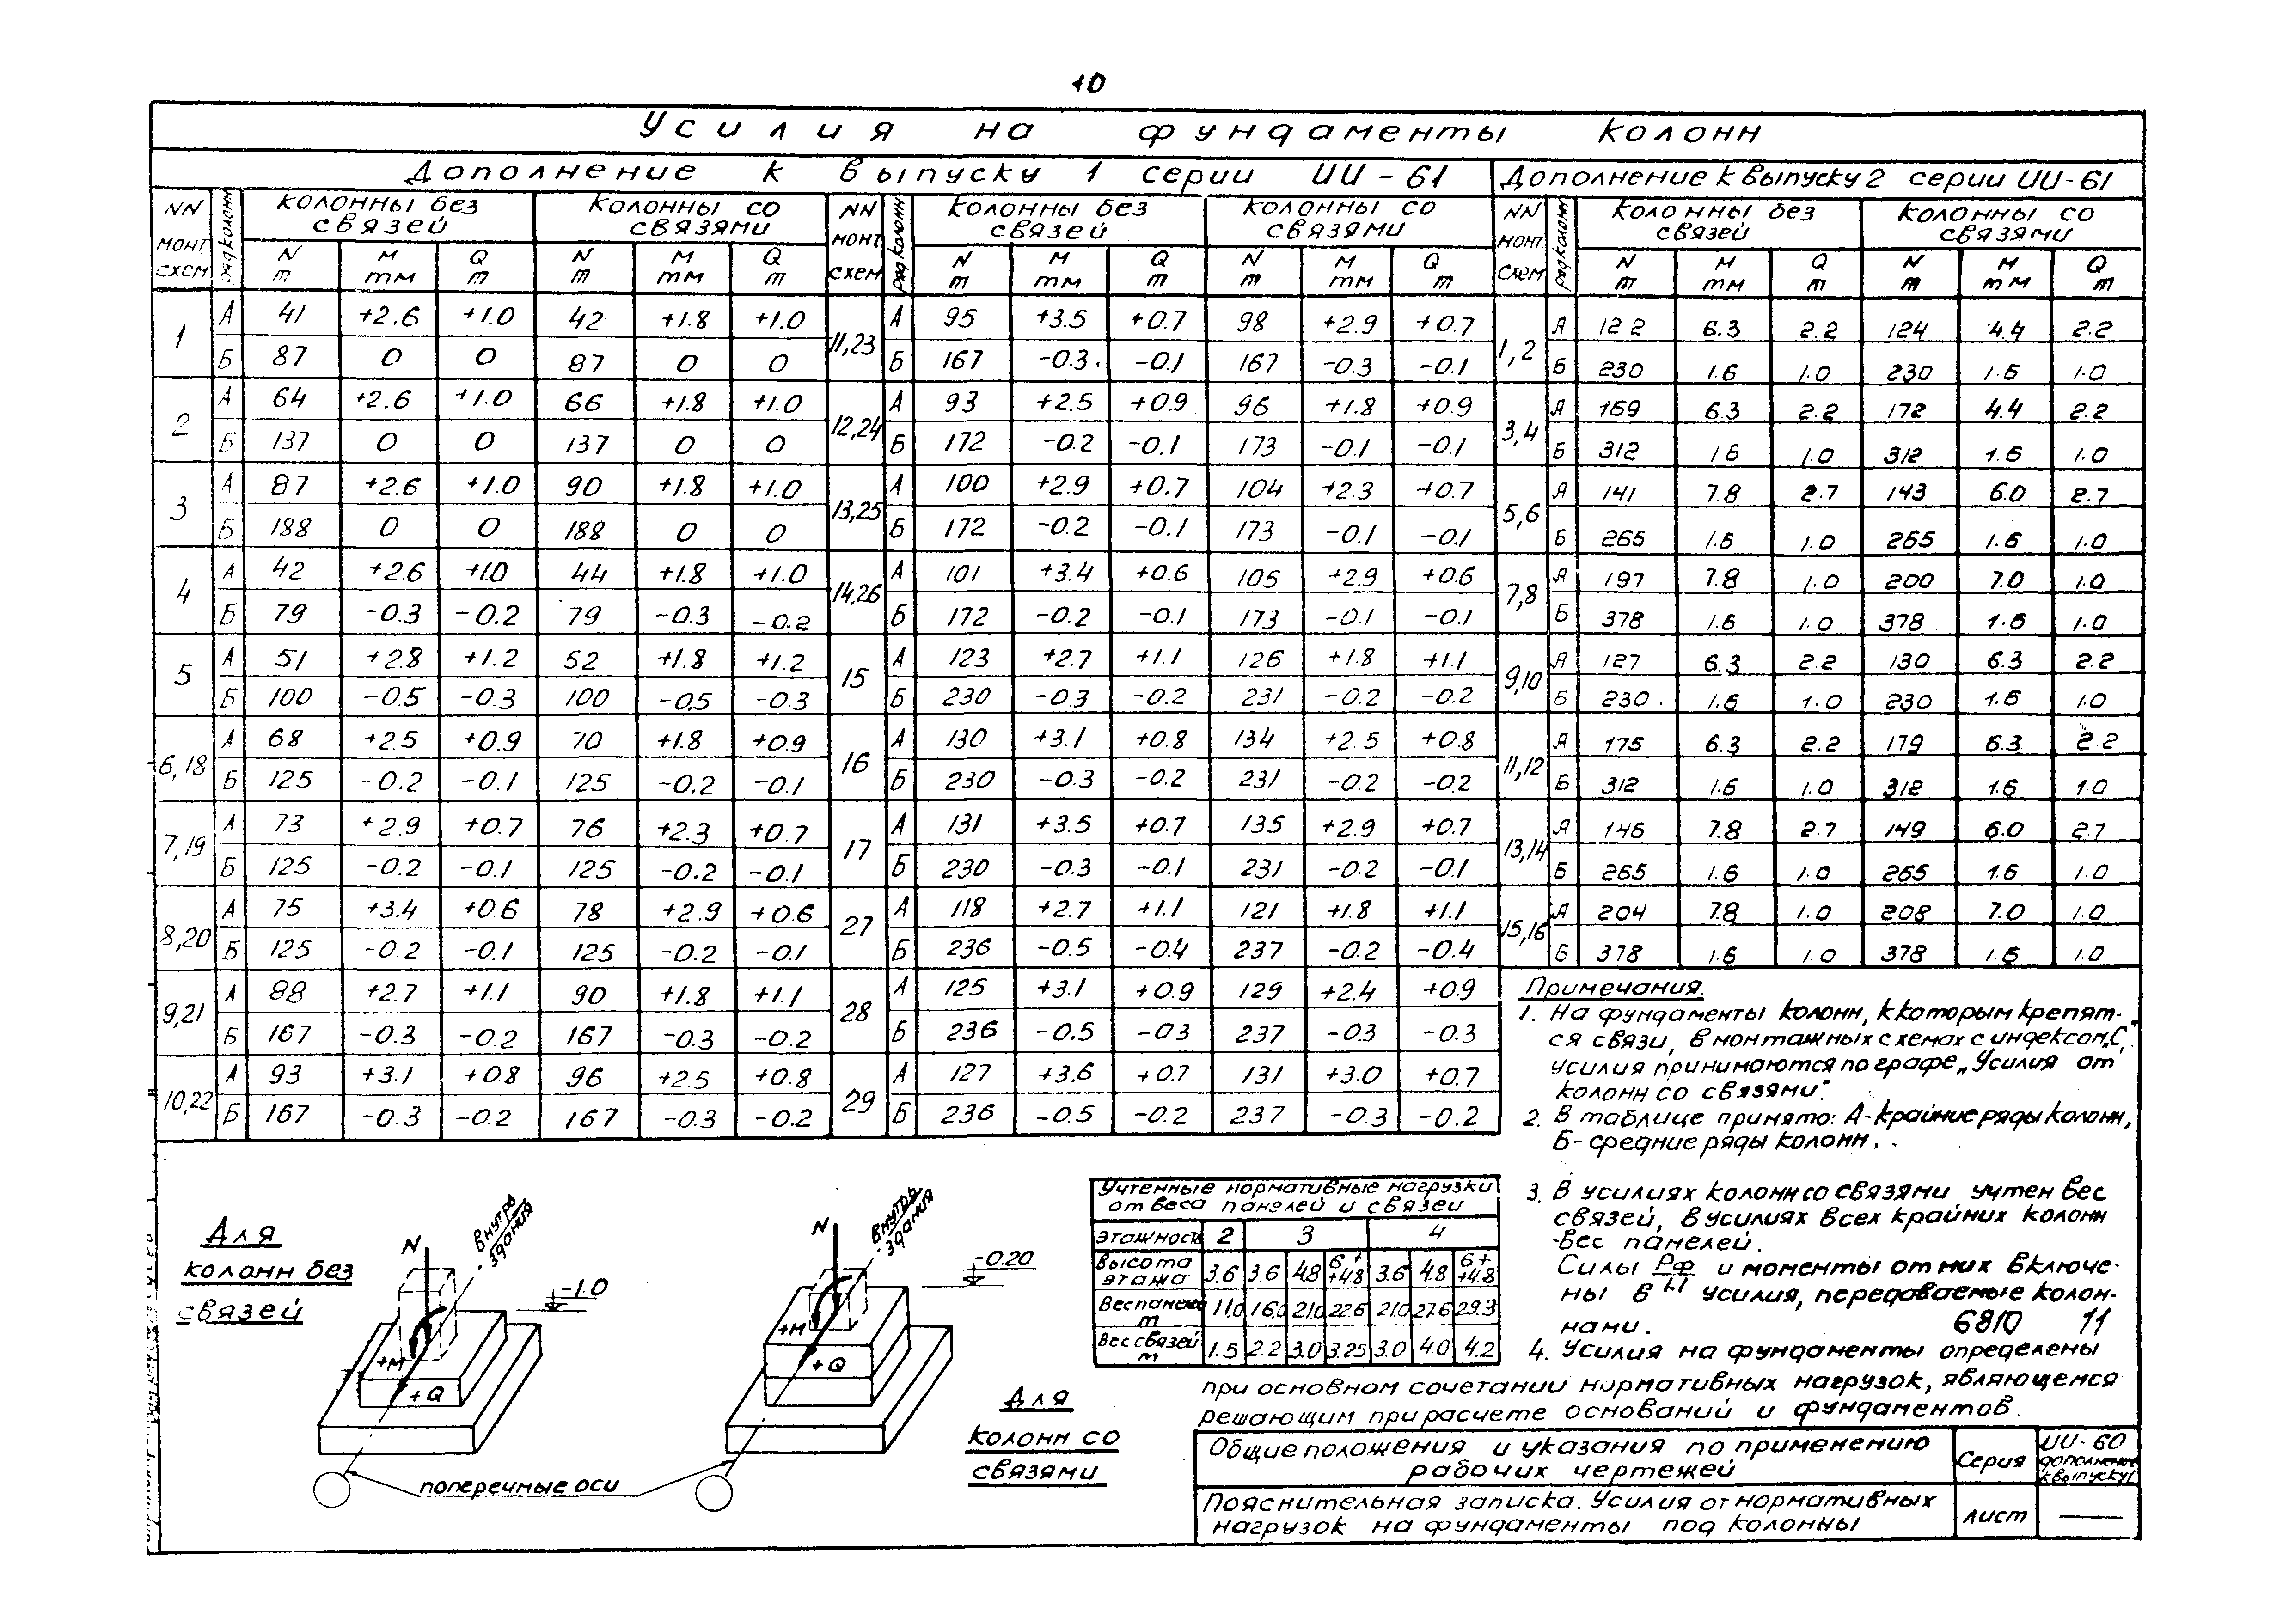 10
Усилия на фундаменты колонн
Дополнение к выпуску 1 серии ИИ-61 Дополнение к выпуску 2 серии ИИ-61
NN монт. схем ряд колонн колонны без связей колонны со связями NN монт. схем ряд колонн колонны без связей колонны со связями NN монт. схем ряд колонн колонны без связей колонны со связями
N т M тм Q т N т M тм Q т N т M тм Q т N т M тм Q т N т M тм Q т N т M тм Q т
1 А 41 +2.6 +1.0 42 +1.8 +1.0 11,23 А 95 +3.5 +0.7 98 +2.9 +0.7 1,2 А 122 6.3 2.2 124 4.4 2.2
Б 87 0 0 87 0 0 Б 167 -0.3 -0.1 167 -0.3 -0.1 Б 230 1.6 1.0 230 1.6 1.0
2 А 64 +2.6 +1.0 66 +1.8 +1.0 12,24 А 93 +2.5 +0.9 96 +1.8 +0.9 3,4 А 169 6.3 2.2 172 4.4 2.2
Б 137 0 0 137 0 0 Б 172 -0.2 -0.1 173 -0.1 -0.1 Б 312 1.6 1.0 312 1.6 1.0
3 А 87 +2.6 +1.0 90 +1.8 +1.0 13,25 А 100 +2.9 +0.7 104 +2.3 +0.7 5,6 А 141 7.8 2.7 143 6.0 2.7
Б 188 0 0 188 0 0 Б 172 -0.2 -0.1 173 -0.1 -0.1 Б 265 1.6 1.0 265 1.6 1.0
4 А 42 +2.6 +1.0 44 +1.8 +1.0 14,26 А 101 +3.4 +0.6 105 +2.9 +0.6 7,8 А 197 7.8 1.0 200 7.0 1.0
Б 79 -0.3 -0.2 79 -0.3 -0.2 Б 172 -0.2 -0.1 173 -0.1 -0.1 Б 378 1.6 1.0 378 1.6 1.0
5 А 51 +2.8 +1.2 52 +1.8 +1.2 15 А 123 +2.7 +1.1 126 +1.8 +1.1 9,10 А 127 6.3 2.2 130 6.3 2.2
Б 100 -0.5 -0.3 100 -0.5 -0.3 Б 230 -0.3 -0.2 231 -0.2 -0.2 Б 230 1.6 1.0 230 1.6 1.0
6,18 А 68 +2.5 +0.9 70 +1.8 +0.9 16 А 130 +3.1 +0.8 134 +2.5 +0.8 11,12 А 175 6.3 2.2 179 6.3 2.2
Б 125 -0.2 -0.1 125 -0.2 -0.1 Б 230 -0.3 -0.2 231 -0.2 -0.2 Б 312 1.6 1.0 312 1.6 1.0
7,19 А 73 +2.9 +0.7 76 +2.3 +0.7 17 А 131 +3.5 +0.7 135 +2.9 +0.7 13,14 А 146 7.8 2.7 149 6.0 2.7
Б 125 -0.2 -0.1 125 -0.2 -0.1 Б 230 -0.3 -0.1 231 -0.2 -0.1 Б 265 1.6 1.0 265 1.6 1.0
8,20 А 75 +3.4 +0.6 78 +2.9 +0.6 27 А 118 +2.7 +1.1 121 +1.8 +1.1 15,16 А 204 7.8 1.0 208 7.0 1.0
Б 125 -0.2 -0.1 125 -0.2 -0.1 Б 236 -0.5 -0.4 237 -0.2 -0.4 Б 378 1.6 1.0 378 1.6 1.0
9,21 А 88 +2.7 +1.1 90 +1.8 +1.1 28 А 125 +3.1 +0.9 129 +2.4 +0.9
Б 167 -0.3 -0.2 167 -0.3 -0.2 Б 236 -0.5 -03 237 -0.3 -0.3
10,22 А 93 +3.1 +0.8 96 +2.5 +0.8 29 А 127 +3.6 +0.7 131 +3.0 +0.7
Б 167 -0.3 -0.2 167 -0.3 -0.2 Б 236 -0.5 -0.2 237 -0.3 -0.2
Примечания.
1. На фундаменты колонн, к которым крепят-
ся связи, в монтажных схемах с индексом „С",
усилия принимаются по графе „Усилия от
колонн со связями".
2. В таблице принято: А-крайние ряды колонн,
Б-средние ряды колонн.
3. В усилиях колонн со связями учтен вес
связей, в усилиях всех крайних колонн
-вес панелей.
Силы Рф и моменты от них включе-
ны в усилия, передаваемые колон-
нами.
6810 11
4. Усилия на фундаменты определены
при основном сочетании нормативных нагрузок, являющемся
решающим при расчете оснований и фундаментов.
Для колонн без связей
N
внутрь здания
-1.0
+M
+Q
поперечные оси
N
внутрь здания
-0.20
+M
+Q
Для колонн со связями
Учтенные нормативные нагрузки
от веса панелей и связей
этажность 2 3 4
высота этажа 3.6 3.6 4.8 6+ +4.8 3.6 4.8 6+ +4.8
Вес панелей т 11.0 16.0 21.0 22.6 21.0 27.6 29.3
Вес связей т 1.5 2.2 3.0 3.25 3.0 4.0 4.2
Общие положения и указания по применению
рабочих чертежей
Серия
ИИ-60
дополнение
к выпуску 1
Пояснительная записка. Усилия от нормативных
нагрузок на фундаменты под колонны
лист